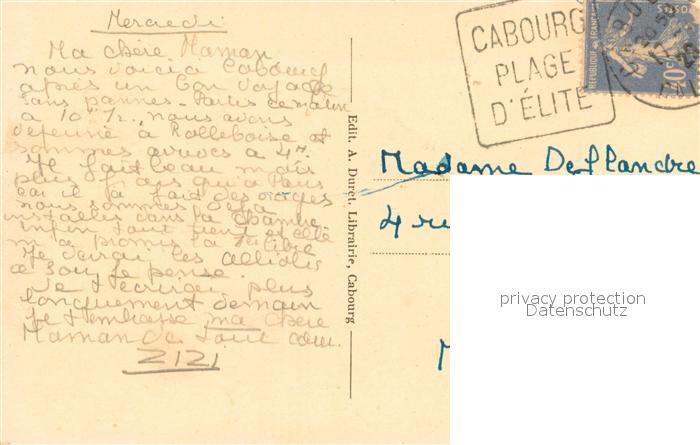 Mercredi
Ma chère Maman
nous voici à Cabourg
après un bon voyage
sans pannes - Partis ce matin
à 10h 1/2, nous avons
déjeuné à Rolleboise et
sommes arrivés à 4h.
Il fait beau mais
plus frais qu'à Paris
car il a fait des orages
nous sommes déjà
installés dans la chambre
enfin tout
m'a promis la
Je verrai les
ce soir je pense.
Je t'écrirai plus
longuement demain
Je t'embrasse ma chère
Maman de tout cœur.
ZIZI
Edit. A. Duret, Librairie, Cabourg
CABOURG
PLAGE
D'ÉLITE
REPUBLIQUE FRANÇAISE
40c
Madame Deflandre
4 rue
privacy protection
Datenschutz